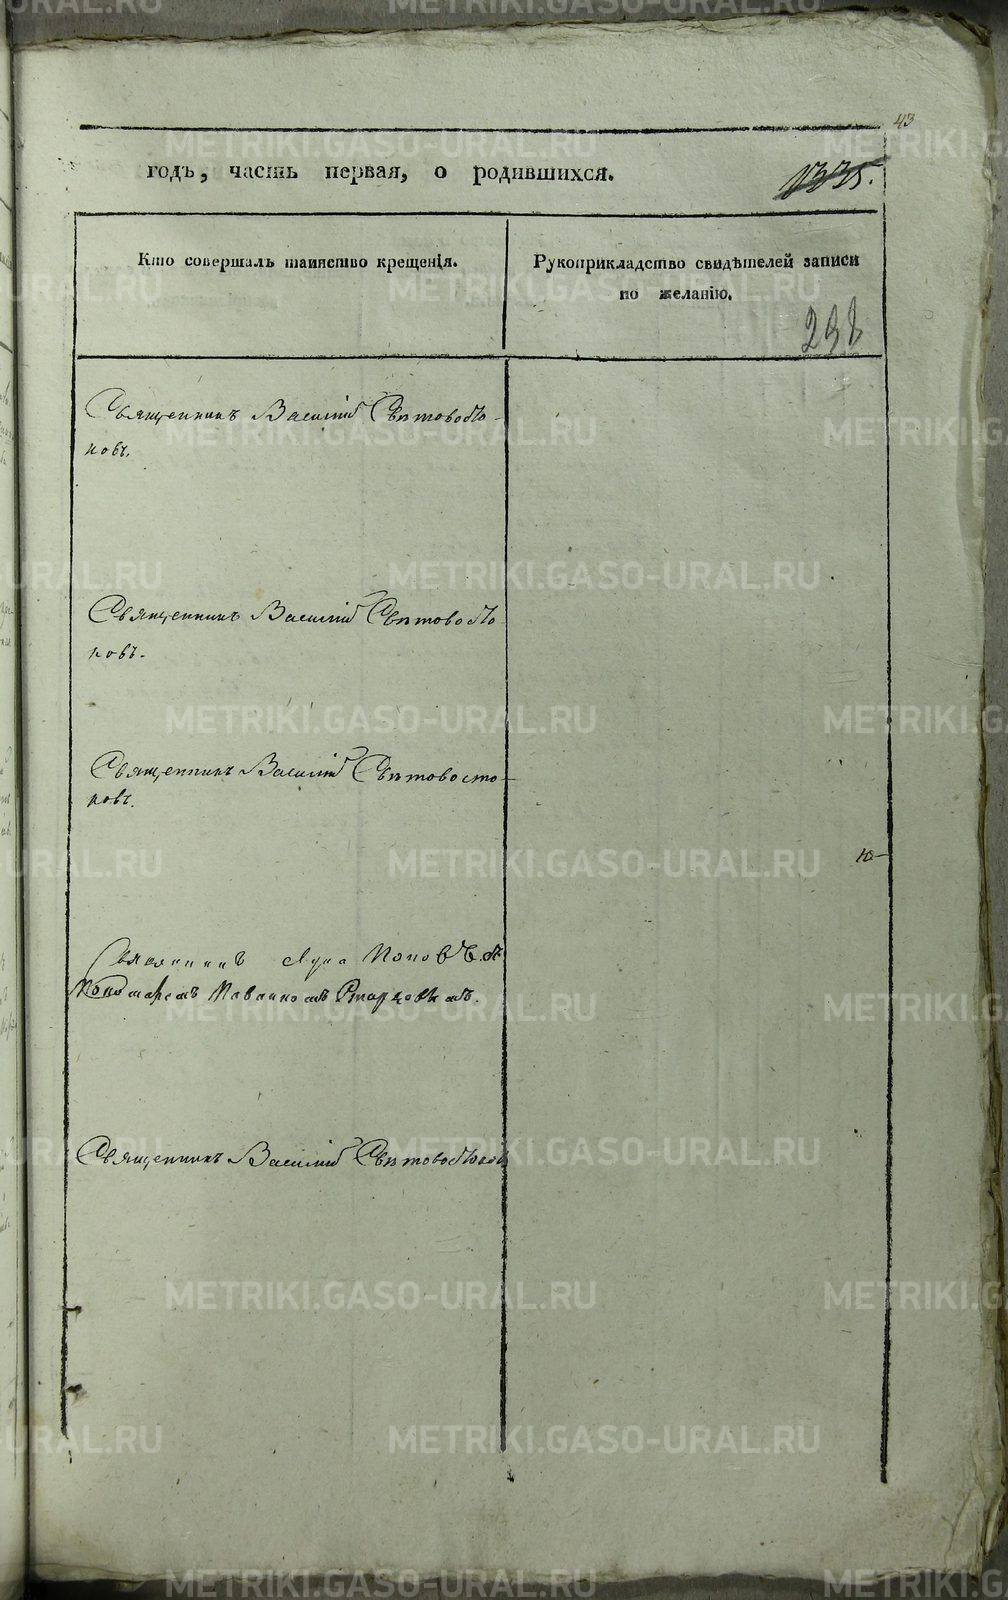 43
годъ, часть первая, о родившихся.
1335.
Кто совершалъ таинство крещенія.
Рукоприкладство свидѣтелей записи
по желанію.
298
Священникъ Василій Свѣтовосто-
ковъ.
Священникъ Василій Свѣтовосто-
ковъ.
Священникъ Василій Свѣтовосто-
ковъ.
Священникъ Лука Поповъ съ
Пономаремъ
Священникъ Василій Свѣтовостоковъ
METRIKI.GASO-URAL.RU